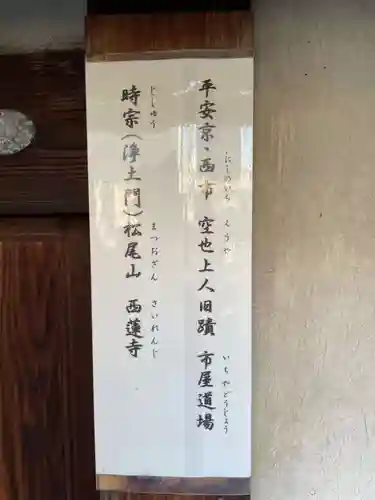 平安京・西市 空也上人旧蹟 市屋道場
にしのいち くうや いちやどうじょう
時宗(浄土門)松尾山 西蓮寺
じしゅう まつおざん さいれんじ